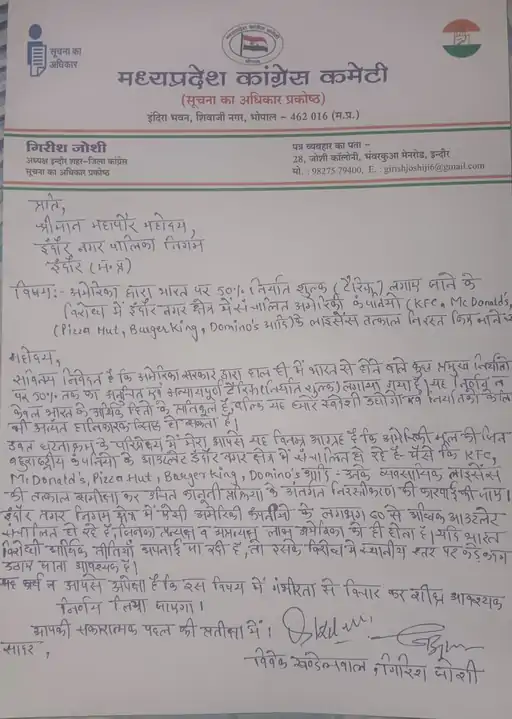 सूचना का
अधिकार
मध्यप्रदेश कांग्रेस कमेटी
(सूचना का अधिकार प्रकोष्ठ)
इंदिरा भवन, शिवाजी नगर, भोपाल – 462 016 (म.प्र.)
गिरीश जोशी
अध्यक्ष इन्दौर शहर-जिला कांग्रेस
सूचना का अधिकार प्रकोष्ठ
पत्र व्यवहार का पता –
28, जोशी कॉलोनी, भंवरकुआ मेनरोड, इन्दौर
मो. : 98275 79400, E. : girishjoshiji6@gmail.com
प्रति,
श्रीमान महापौर महोदय,
इंदौर नगर पालिका निगम
इंदौर (म.प्र)
विषय:- अमेरिका द्वारा भारत पर 50% निर्यात शुल्क (टैरिफ) लगाए जाने के
विरोध में इंदौर नगर क्षेत्र में संचालित अमेरिकी कंपनियों (KFC, McDonald's,
(Pizza Hut, Burger King, Domino's आदि) के लाइसेंस तत्काल निरस्त किए जाने
महोदय,
सविनय निवेदन है कि अमेरिका सरकार द्वारा हाल ही में भारत से होने वाले कुछ प्रमुख निर्यातों
पर 50% तक का अनुचित एवं अन्यायपूर्ण टैरिफ (निर्यात शुल्क) लगाया गया है। यह निर्णय न
केवल भारत के आर्थिक हितों के प्रतिकूल है, बल्कि यह स्वदेशी उद्योगों एवं निर्यातकों के लिए
भी अत्यंत हानिकारक सिद्ध हो सकता है।
उक्त घटनाक्रम के परिप्रेक्ष्य में मेरा आपसे यह विनम्र आग्रह है कि अमेरिकी मूल की जिन
बहुराष्ट्रीय कंपनियों के आउटलेट इंदौर नगर क्षेत्र में संचालित हो रहे हैं जैसे कि KFC,
McDonald's, Pizza Hut, Burger King, Domino's आदि - उनके व्यवसायिक लाइसेंस
की तत्काल समीक्षा कर उचित कानूनी प्रक्रिया के अंतर्गत निरस्तीकरण की कारवाई की जाए।
इंदौर नगर निगम क्षेत्र में ऐसी अमेरिकी कंपनियों के लगभग से अधिक आउटलेट
संचालित हो रहे हैं, जिनका प्रत्यक्ष व अप्रत्यक्ष लाभ अमेरिका को ही होता है। यदि भारत
विरोधी आर्थिक नीतियां अपनाई जा रही है, तो उसके विरोध में स्थानीय स्तर पर कड़े कदम
उठाए जाना आवश्यक है।
आपसे अपेक्षा है कि इस विषय में गंभीरता से विचार कर शीघ्र आवश्यक
निर्णय लिया जाएगा।
आपकी सकारात्मक पहल की प्रतीक्षा में।
सादर,
विवेक खंडेलवाल गिरीश जोशी